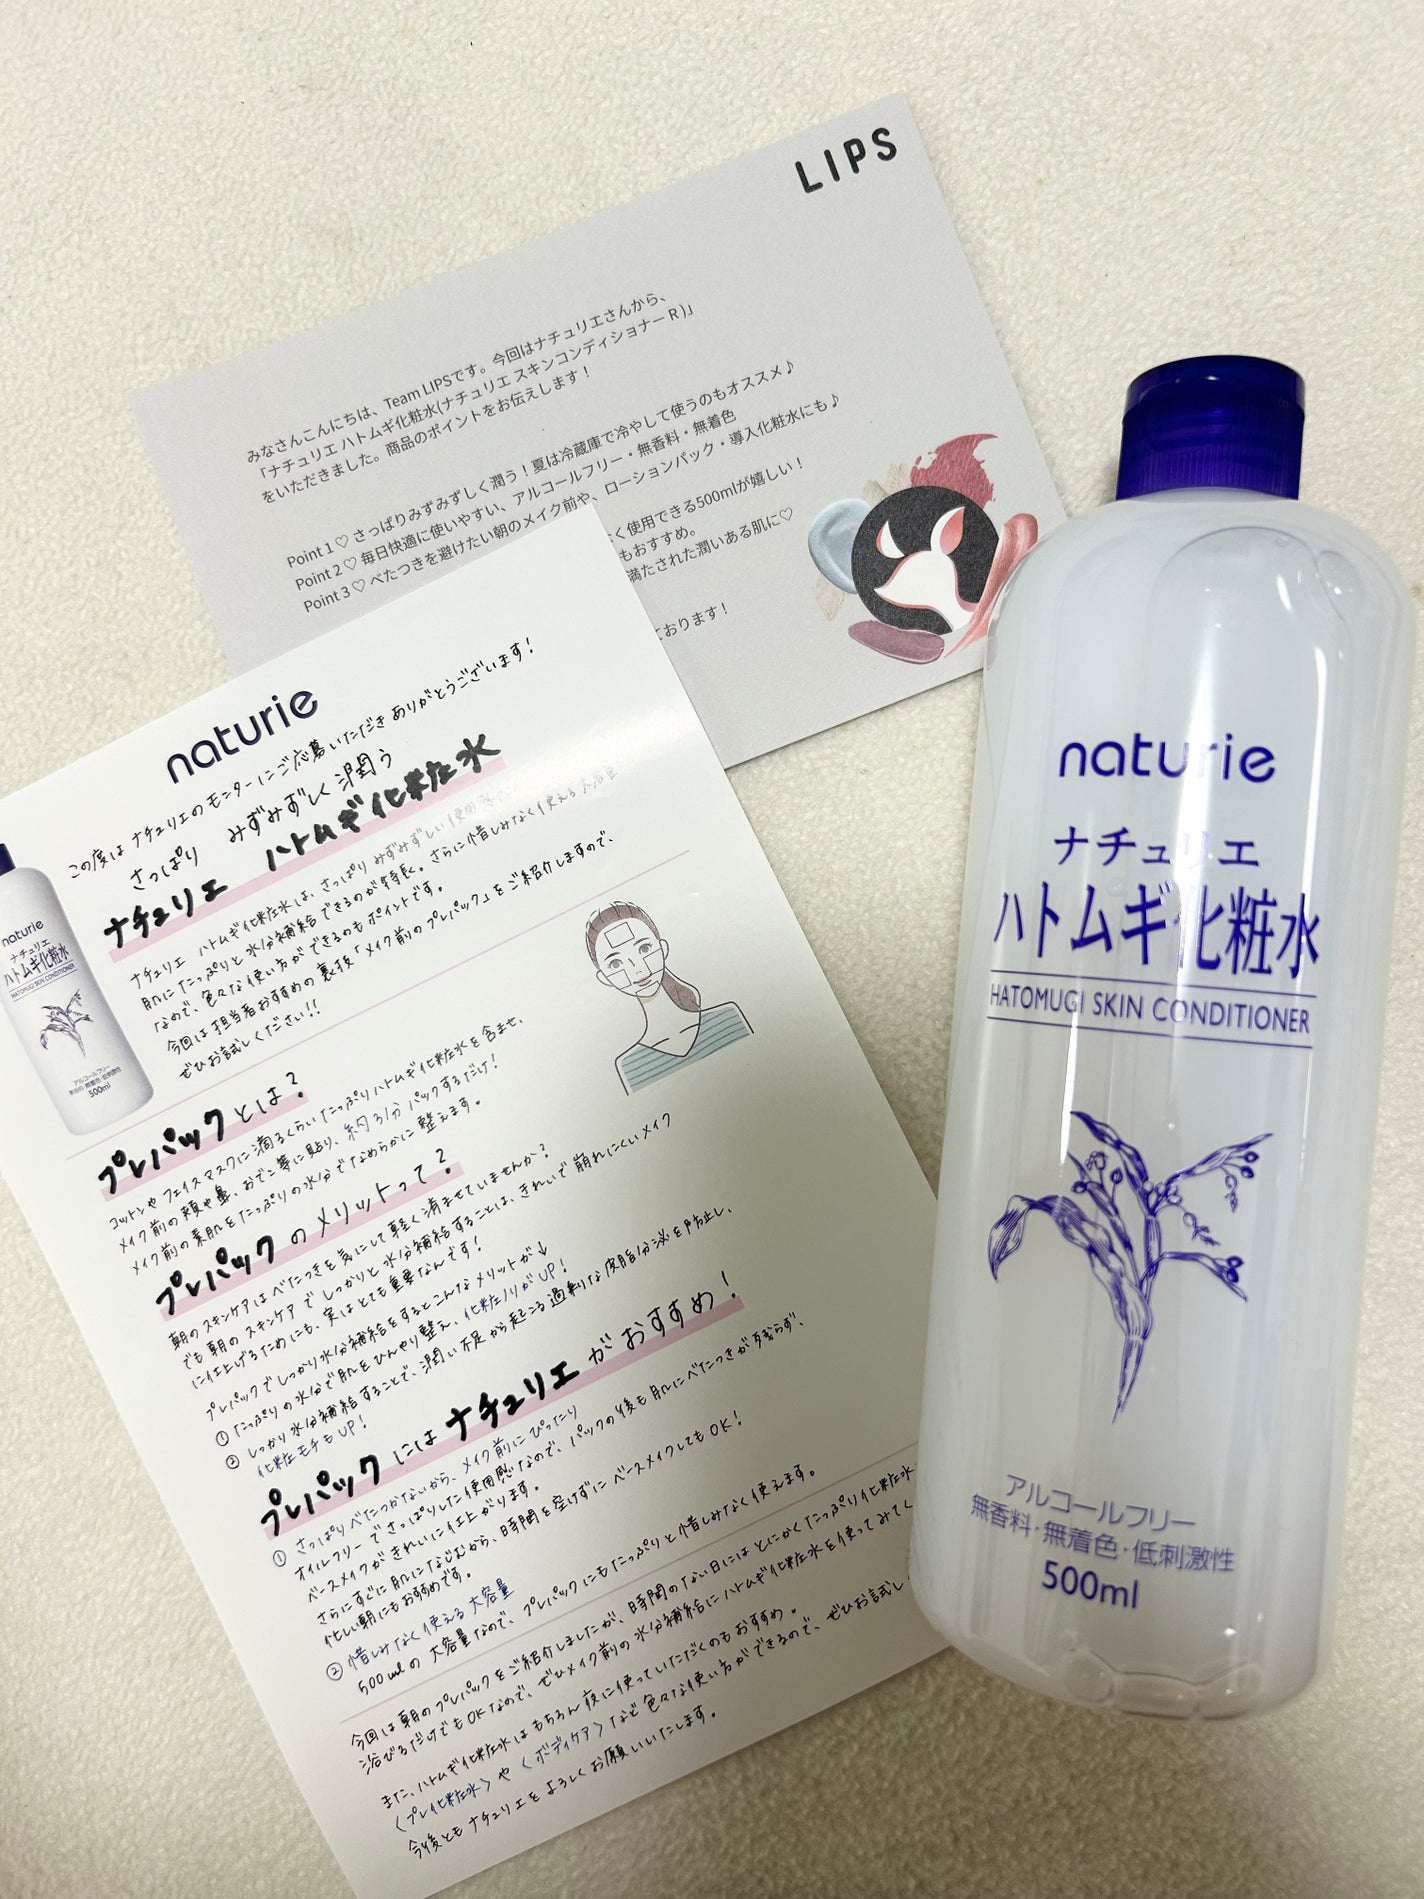 LIPS
みなさんこんにちは、Team LIPSです。今回はナチュリエさんから、
「ナチュリエ ハトムギ化粧水(ナチュリエ スキンコンディショナー R )」
をいただきました。商品のポイントをお伝えします！
Point 1 ♡ さっぱりみずみずしく潤う！夏は冷蔵庫で冷やして使うのもオススメ♪
Point 2 ♡ 毎日快適に使いやすい、アルコールフリー・無香料・無着色
Point 3 ♡ べたつきを避けたい朝のメイク前や、ローションパック・導入化粧水にも♪
く使用できる500mlが嬉しい！
もおすすめ。
満たされた潤いある肌に♡
ております！
naturie
この度は ナチュリエのモニターにご応募いただき ありがとうございます！
さっぱり みずみずしく潤う
ナチュリエ ハトムギ化粧水
ナチュリエ ハトムギ化粧水は、さっぱりみずみずしい使用感で
肌にたっぷりと水分補給できるのが特長。さらに惜しみなく使える大容量
なので、色々な使い方ができるのもポイントです。
今回は担当者おすすめの裏技「メイク前のプレパック」をご紹介しますので、
ぜひお試しください!!
naturie
ナチュリエ
ハトムギ化粧水
HATOMUGI SKIN CONDITIONER
アルコールフリー
無香料・無着色・低刺激性
500ml
プレパックとは？
コットンやフェイスマスクに滴るくらいたっぷりハトムギ化粧水を含ませ、
メイク前の頬や鼻、おでこ等に貼り、約3分パックするだけ！
メイク前の素肌をたっぷりの水分でなめらかに整えます。
プレパックのメリットって？
朝のスキンケアはべたつきを気にして軽く済ませていませんか？
でも朝のスキンケアでしっかりと水分補給することは、きれいで崩れにくいメイク
に仕上げるためにも、実はとても重要なんです！
プレパックでしっかり水分補給をするとこんなメリットが↓
① たっぷりの水分で肌をひんやり整え、化粧ノリがUP！
② しっかり水分補給することで、潤い不足から起こる過剰な皮脂分泌を防止し、
化粧モチもUP！
プレパックにはナチュリエがおすすめ！
① さっぱりべたつかないから、メイク前にぴったり
オイルフリーでさっぱりした使用感なので、パックの後も肌にべたつきが残らず、
ベースメイクがきれいに仕上がります。
さらにすぐに肌になじむから、時間を空けずにベースメイクしてもOK！
忙しい朝にもおすすめです。
② 惜しみなく使える大容量
500mlの大容量なので、プレパックにもたっぷりと惜しみなく使えます。
今回は朝のプレパックをご紹介しましたが、時間のない日にはとにかくたっぷり化粧水
浴びるだけでもOKなので、ぜひメイク前の水分補給にハトムギ化粧水を使ってみてく
また、ハトムギ化粧水はもちろん夜に使っていただくのもおすすめ。
〈プレ化粧水〉や〈ボディケア〉など色々な使い方ができるので、ぜひお試し
今後ともナチュリエをよろしくお願いいたします。
naturie
ナチュリエ
ハトムギ化粧水
HATOMUGI SKIN CONDITIONER
アルコールフリー
無香料・無着色・低刺激性
500ml